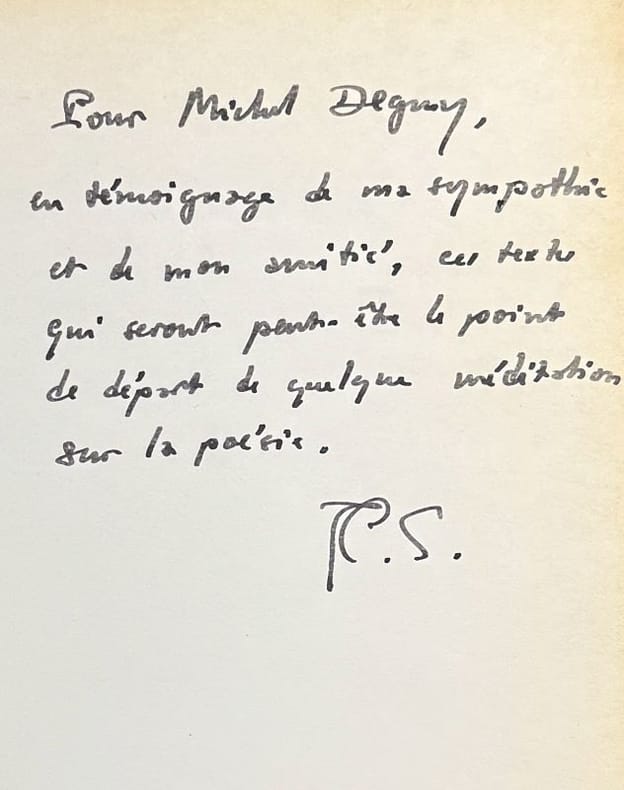 Pour Michel Deguy,
en témoignage de ma sympathie
et de mon amitié, ces textes
qui seront peut-être le point
de départ de quelque méditation
sur la poésie.
P.S.